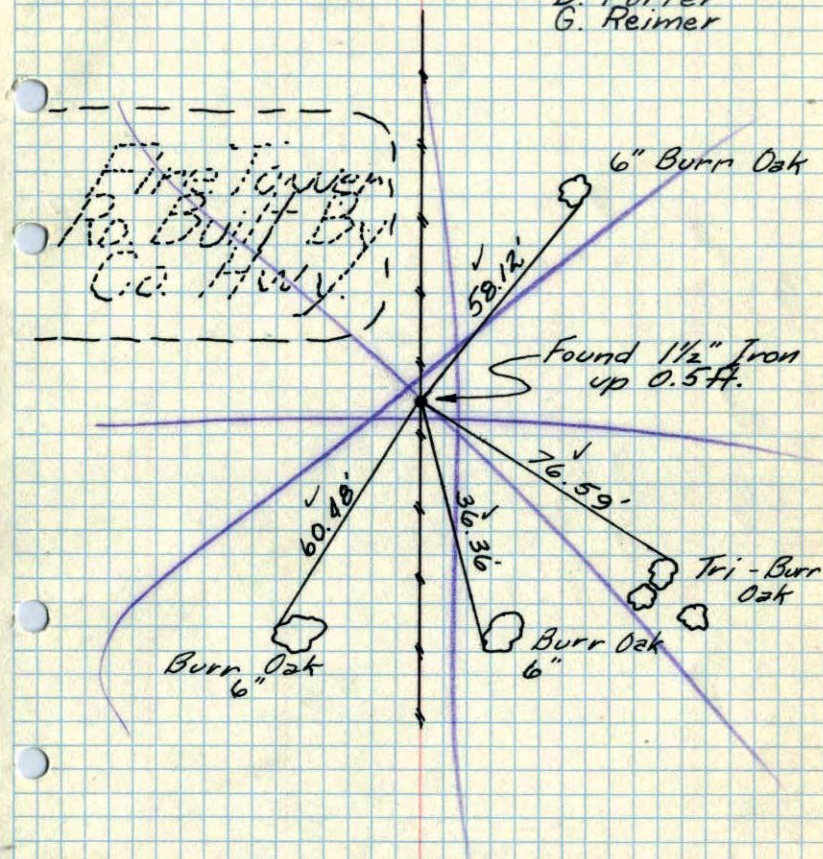 G. Reimer
Fire Tower
Rd. Built By
Co. Hwy.
6" Burr Oak
58.12'
Found 1½" Iron
up 0.5ft.
76.59'
60.48'
36.36'
Tri-Burr
Oak
Burr Oak
6"
Burr Oak
6"